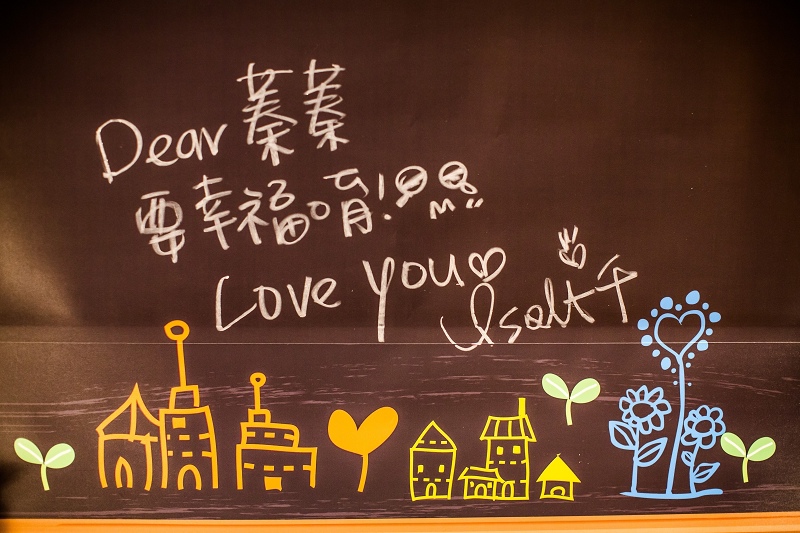 Dear 蓁蓁
要幸福唷!
Love you